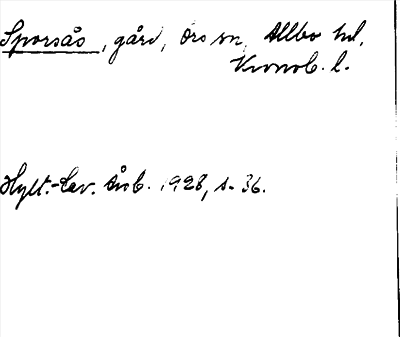 Sporsås, gård, Örs sn, Allbo hd,
Kronob. l.
Hylt.-Cav. Årsb. 1928, s. 36.